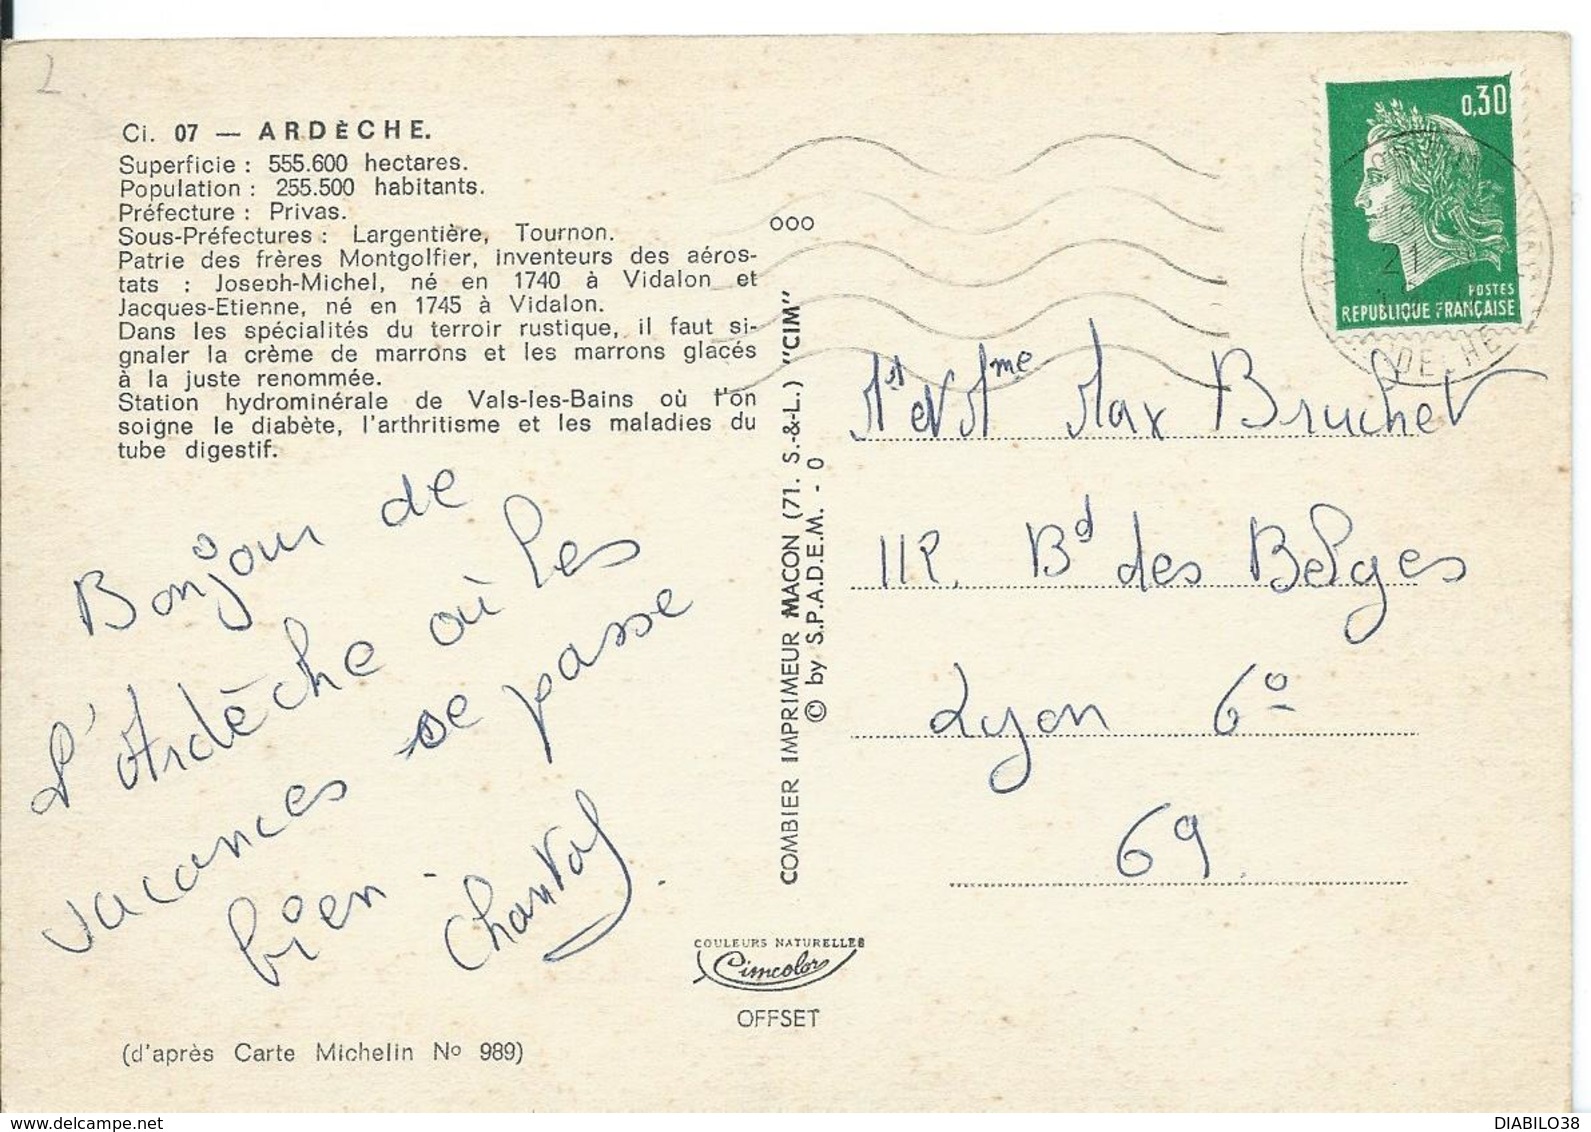 Ci. 07 — ARDÈCHE.
Superficie : 555.600 hectares.
Population : 255.500 habitants.
Préfecture : Privas.
Sous-Préfectures : Largentière, Tournon.
Patrie des frères Montgolfier, inventeurs des aéros-
tats : Joseph-Michel, né en 1740 à Vidalon et
Jacques-Etienne, né en 1745 à Vidalon.
Dans les spécialités du terroir rustique, il faut si-
gnaler la crème de marrons et les marrons glacés
à la juste renommée.
Station hydrominérale de Vals-les-Bains où l'on
soigne le diabète, l'arthritisme et les maladies du
tube digestif.
Bonjour de
l'Ardèche où les
vacances se passe
bien.
Chantal.
(d'après Carte Michelin No 989)
ooo
COMBIER IMPRIMEUR MACON (71. S.-&-L.) "CIM"
© by S.P.A.D.E.M. - 0
COULEURS NATURELLES
Cimcolor
OFFSET
0,30
POSTES
REPUBLIQUE FRANÇAISE
21
Mr et Mme Max Bruchet
112. Bd des Belges
Lyon 6o
69.
DIABILO38